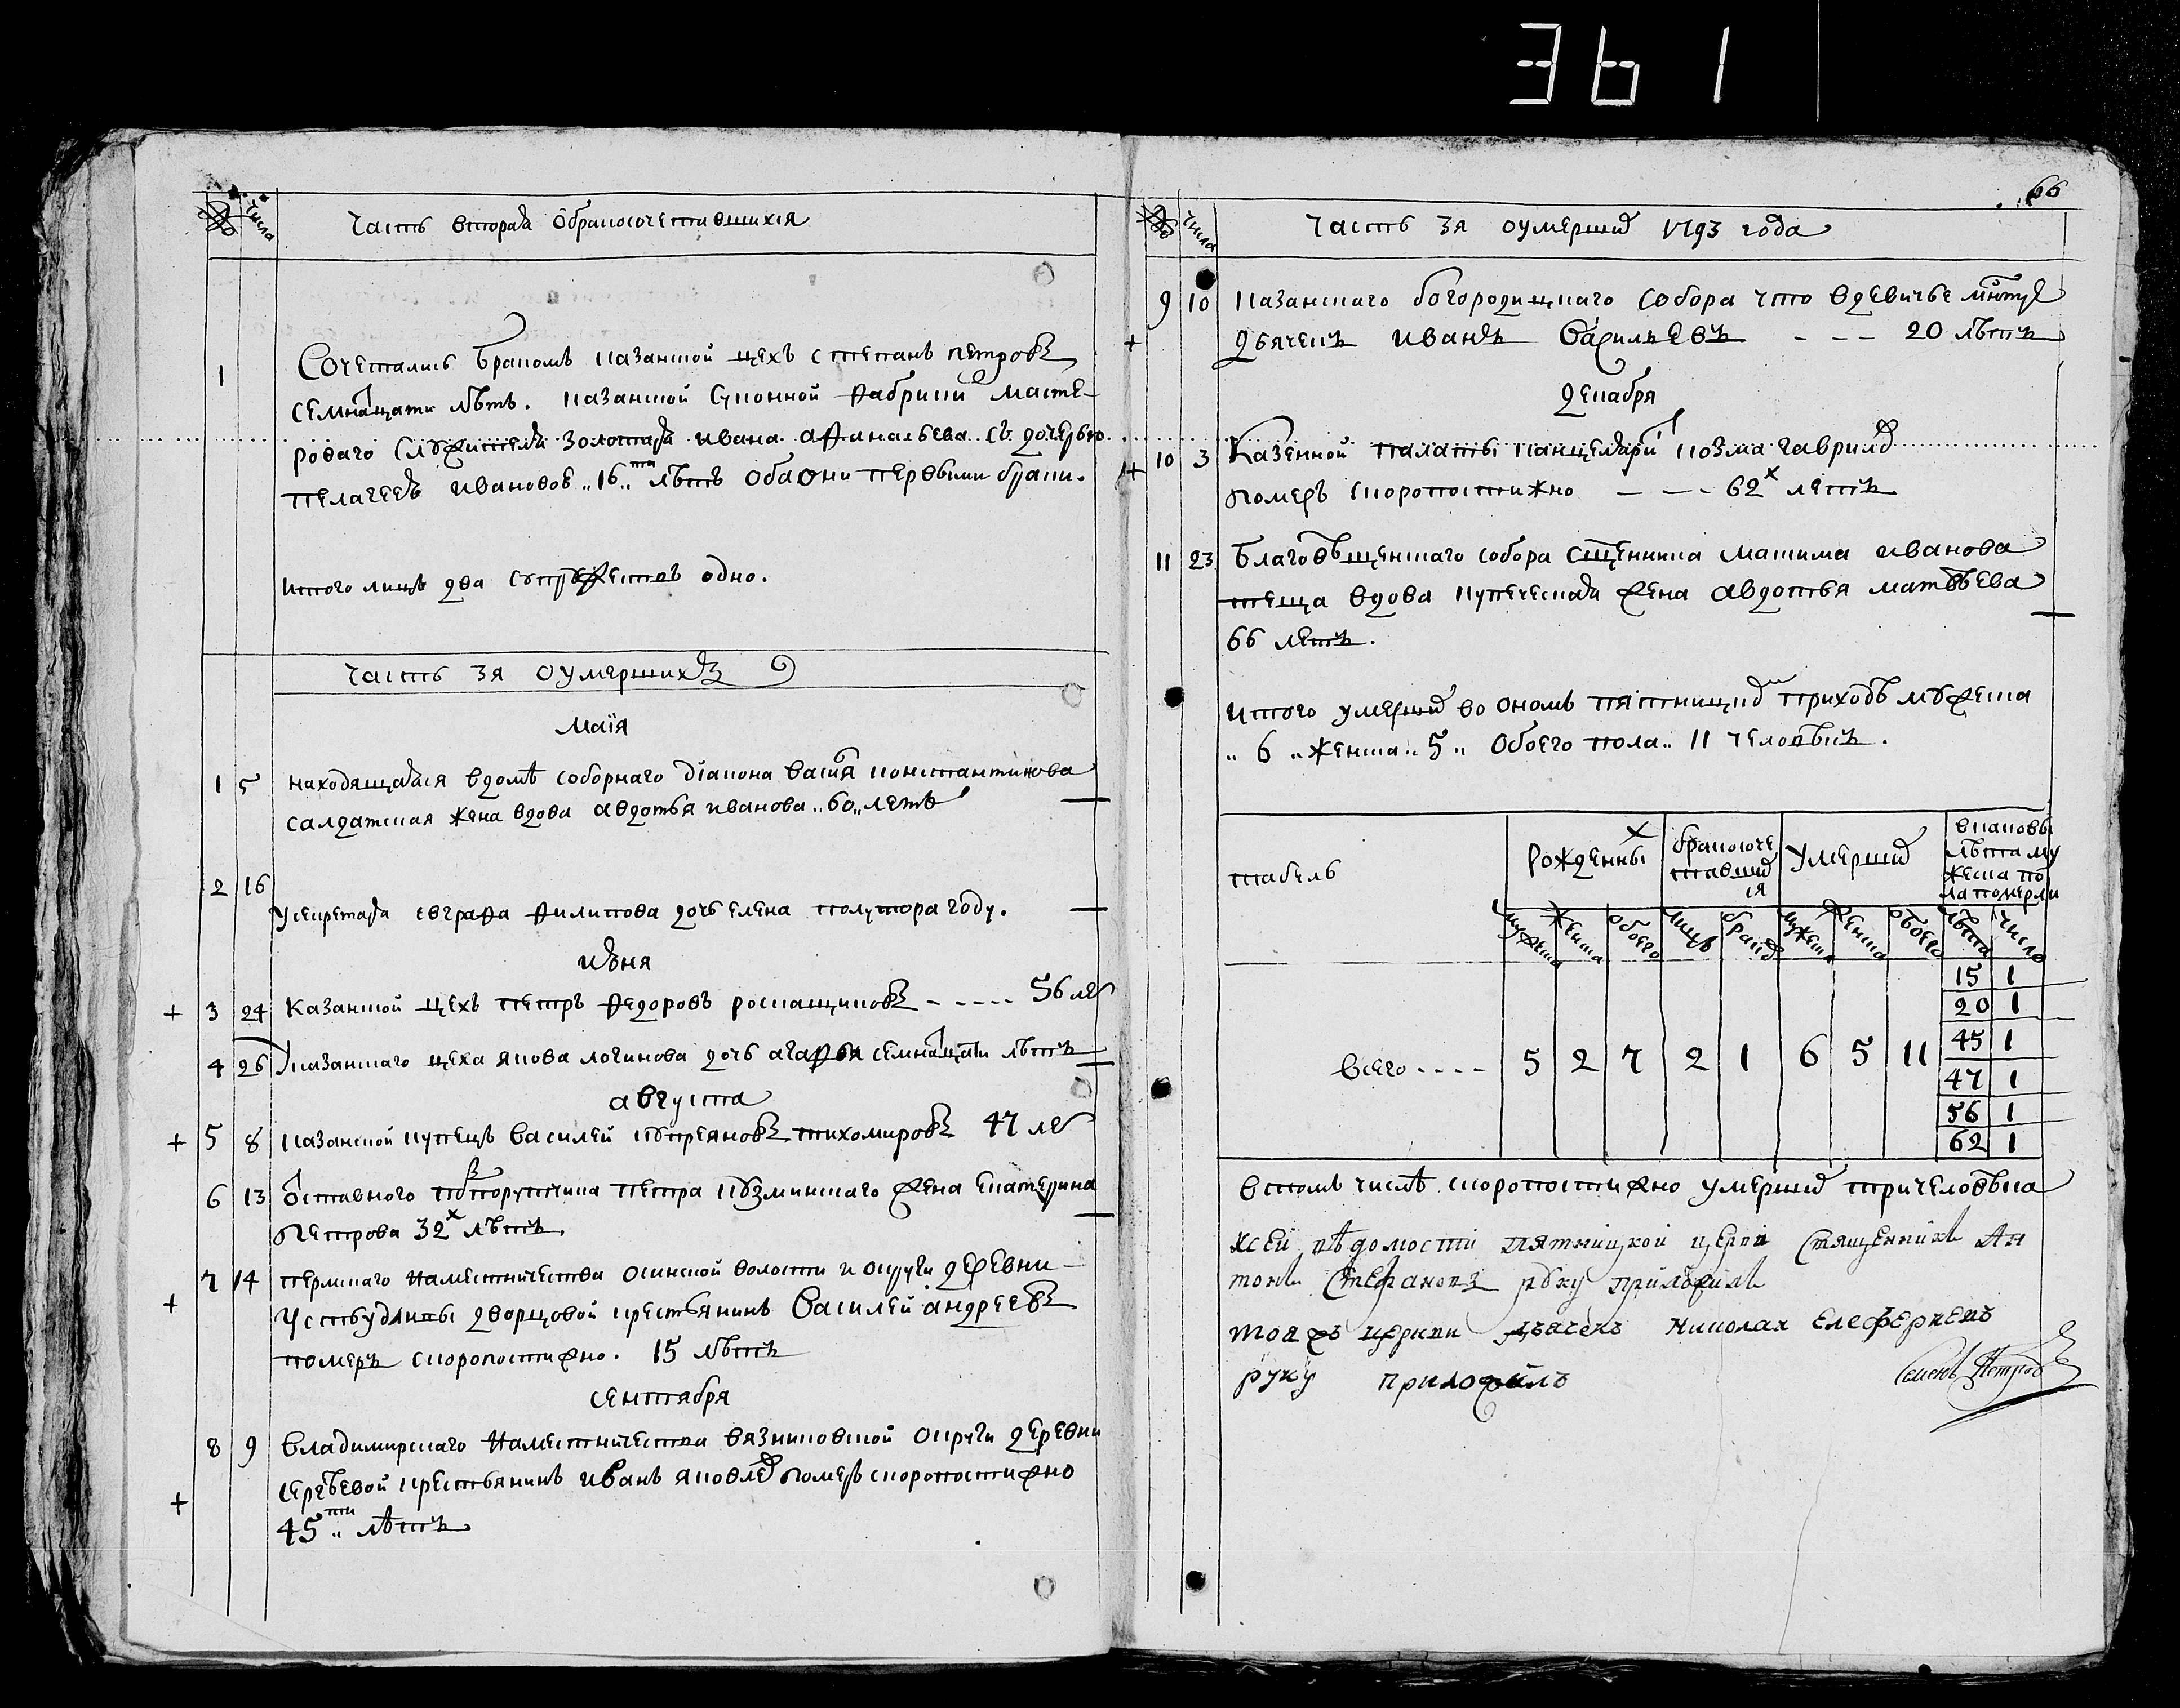 361
№ числа
Часть вторая Обракосочетавшихся
1
Сочетались бракомъ казанской цехъ степанъ петровъ
семнатцати лѣтъ. казанской суконной фабрики масте-
роваго служителя золотаря ивана афанасьева съ дочерью
пелагеей ивановой „16„ти лѣтъ оба они первыми браки.
итого лицъ два супружествъ одно.
Часть 3я оумершихъ
маїя
1 5 находящаяся вдомѣ соборнаго діакона васия константинова
салдатская жена вдова авдотья иванова „60„ летъ
2 16
усекретаря евграфа филипова дочь елена полутора году.
июня
+ 3 24 Казанской цехъ петръ федоровъ роспащиковъ - - - - 56 ле
4 26 казанскаго цеха якова логинова дочь агафья семнатцати лѣтъ
августа
+ 5 8 казанской купецъ василей купреяновъ тихомировъ 47 ле
6 13 ѿставного подпорутчика петра кузминскаго жена екатерина
петрова 32х лѣтъ
7 14 пермскаго намѣстничества осинской волости и округи деревни
+ дворцовой крестьянинъ Василей андреевъ
померъ скоропостижно. 15 лѣтъ
сентября
8 9 владимирскаго Намѣстничества вязниковской округи деревни
крестьянинъ иванъ яковлев померъ скоропостижно
+
45 ти „ лѣтъ
66
№ числа
Часть 3я оумерших 1793 года
9 10 казанскаго богородицкаго собора что вдевичье мнтре
+ дьячекъ иванъ васильевъ - - - 20 лѣтъ
декабря
+ 10 3 Казенной палаты канцеляри козма гаврилов
померъ скоропостижно - - - 62х летъ
11 23 благовѣщенскаго собора сщенника макима иванова
теща вдова купеческая жена авдотья матвѣева
66 летъ.
итого умерших во ономъ пятницком приходѣ мужеска
„ 6 „ женска „ 5 „ обоего пола „ 11 человѣкъ.
табель
рожденны х
бракосоче
тавших
ся
умерших
вкаковы
лѣта му
жеска по
ла померли
мужеска женска обоего лицъ браков мужеска женска обоего лѣта число
всего - - - - 5 2 7 2 1 6 5 11
15 1
20 1
45 1
47 1
56 1
62 1
втомъ числѣ скоропостижно умерших тричеловѣка
ксей вѣдомости пятницкой церкви священникъ Ан
тонъ Стефановъ руку приложилъ
тояжъ церкви дьячекъ николай елефериевъ
руку приложилъ
Семенъ Петров